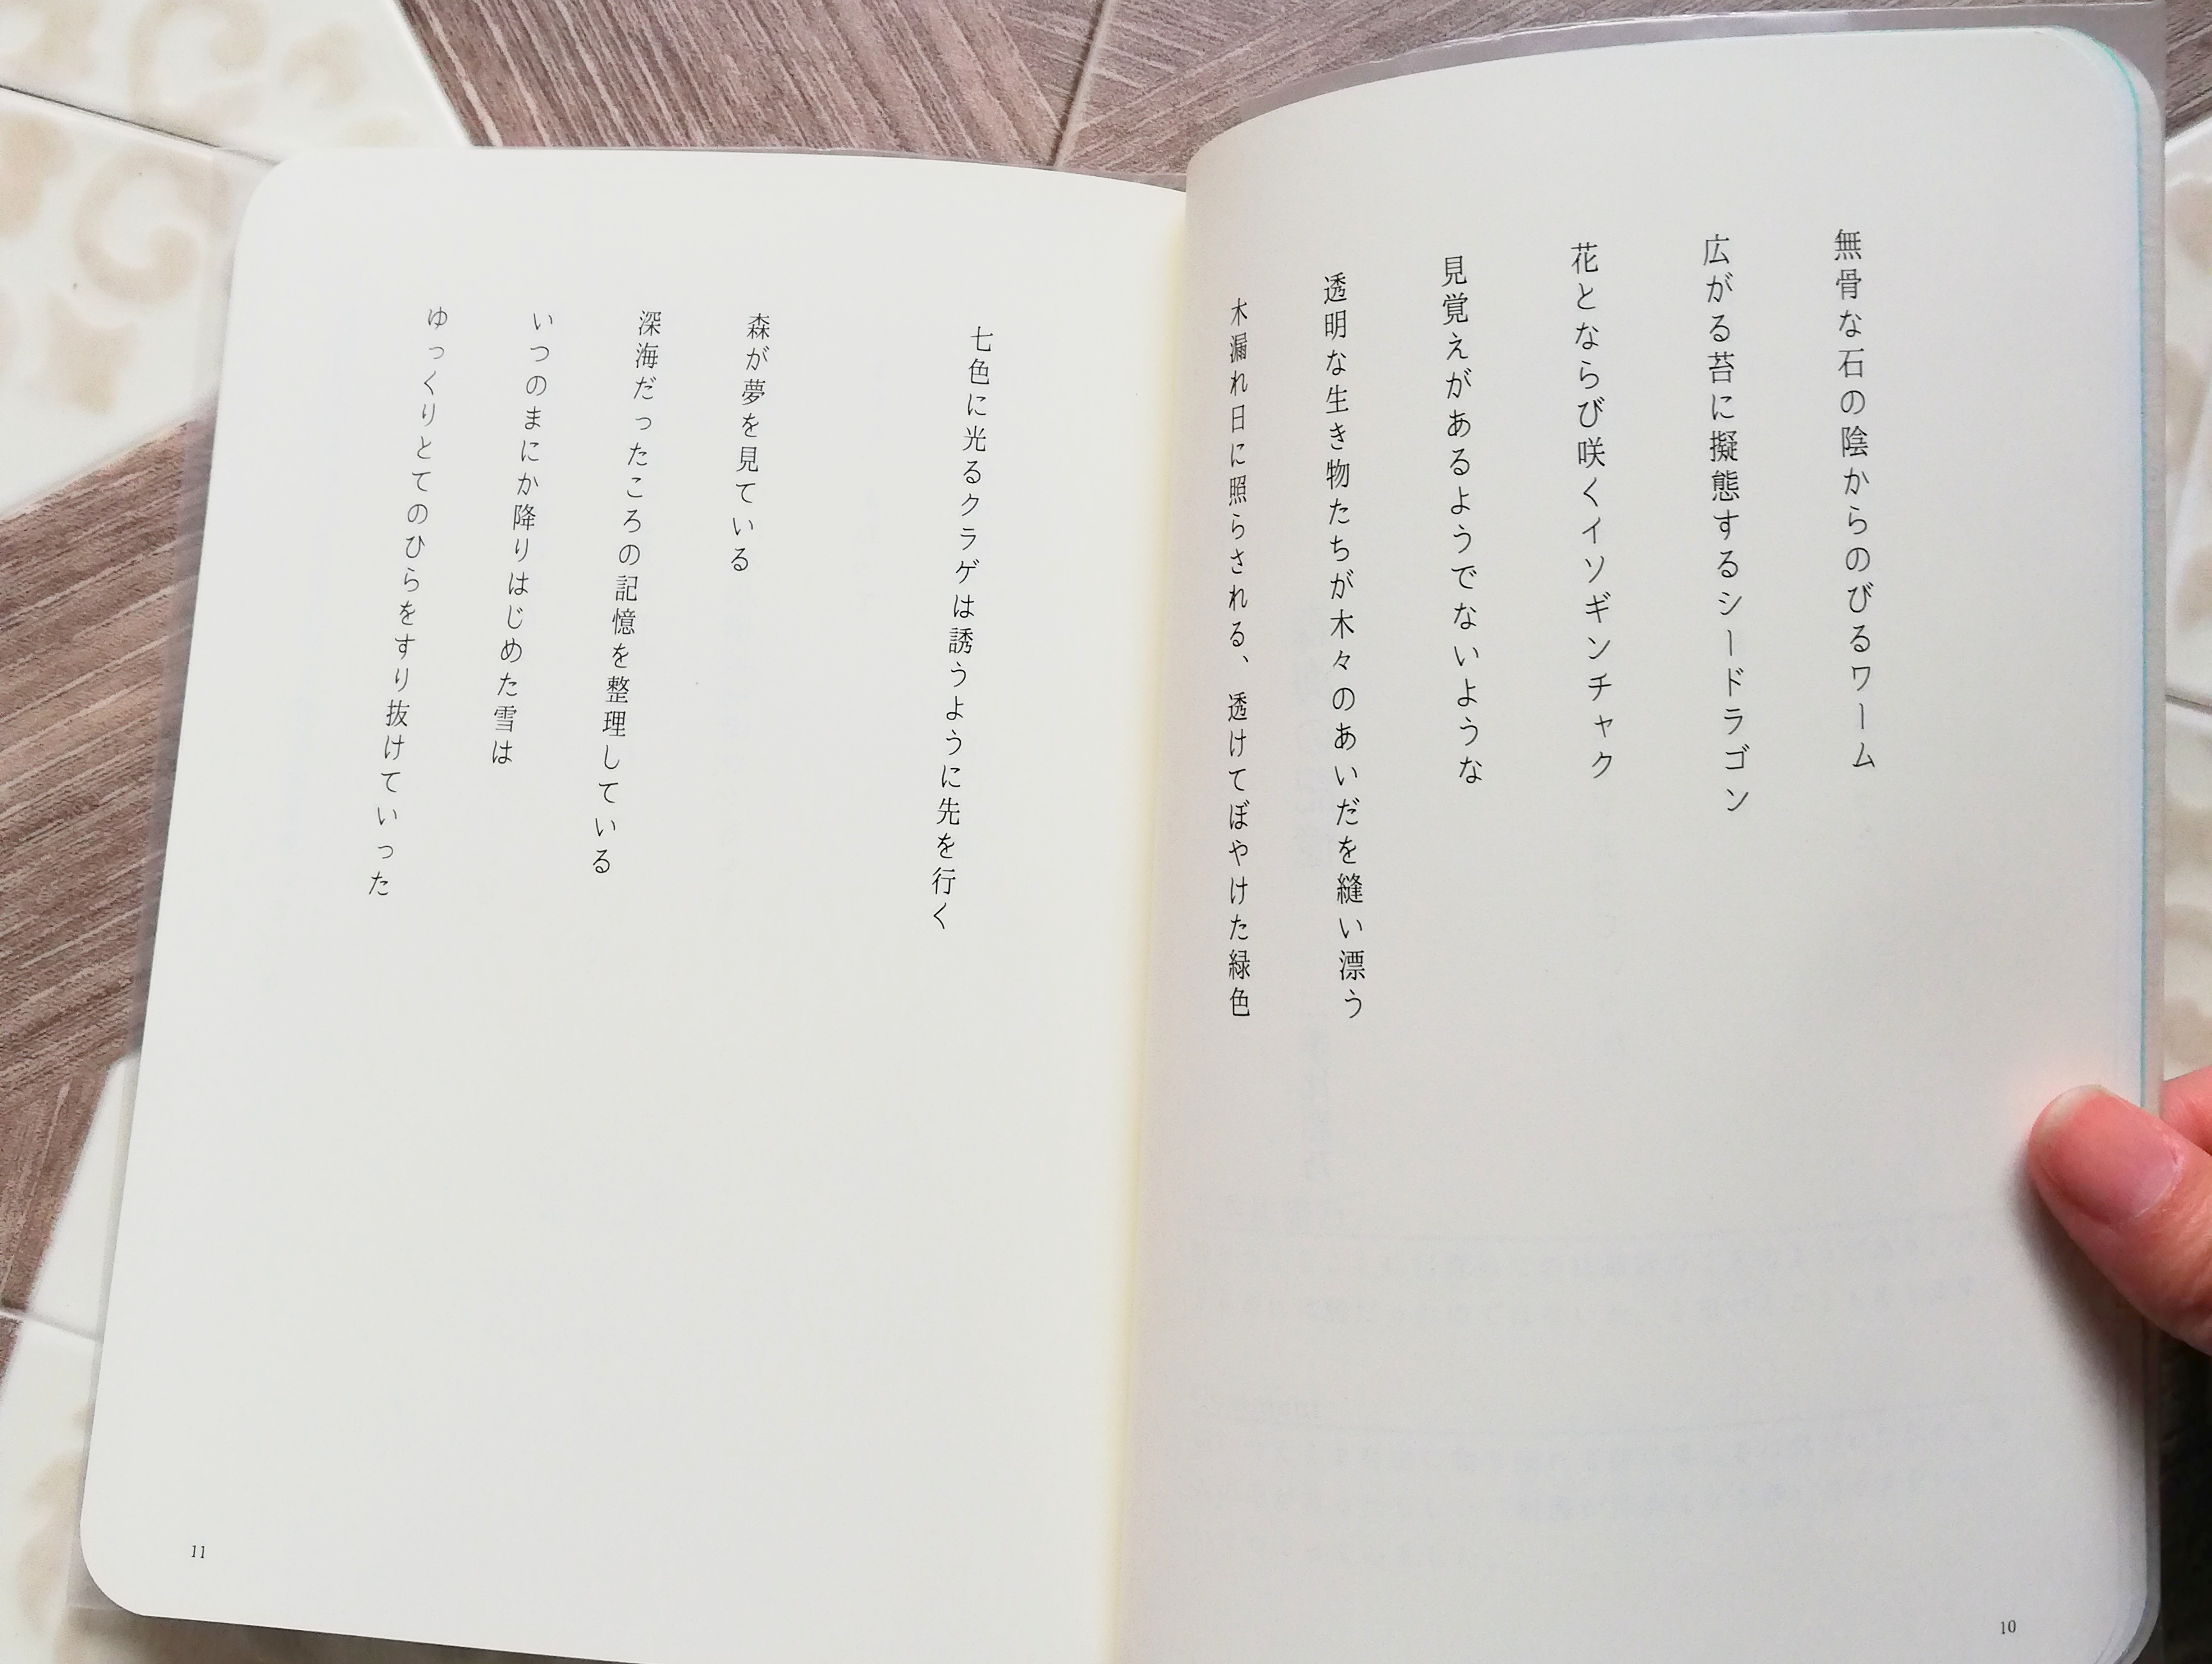 無骨な石の陰からのびるワーム
広がる苔に擬態するシードラゴン
花とならび咲くイソギンチャク
見覚えがあるようでないような
透明な生き物たちが木々のあいだを縫い漂う
木漏れ日に照らされる、透けてぼやけた緑色
10
七色に光るクラゲは誘うように先を行く
森が夢を見ている
深海だったころの記憶を整理している
いつのまにか降りはじめた雪は
ゆっくりとてのひらをすり抜けていった
11